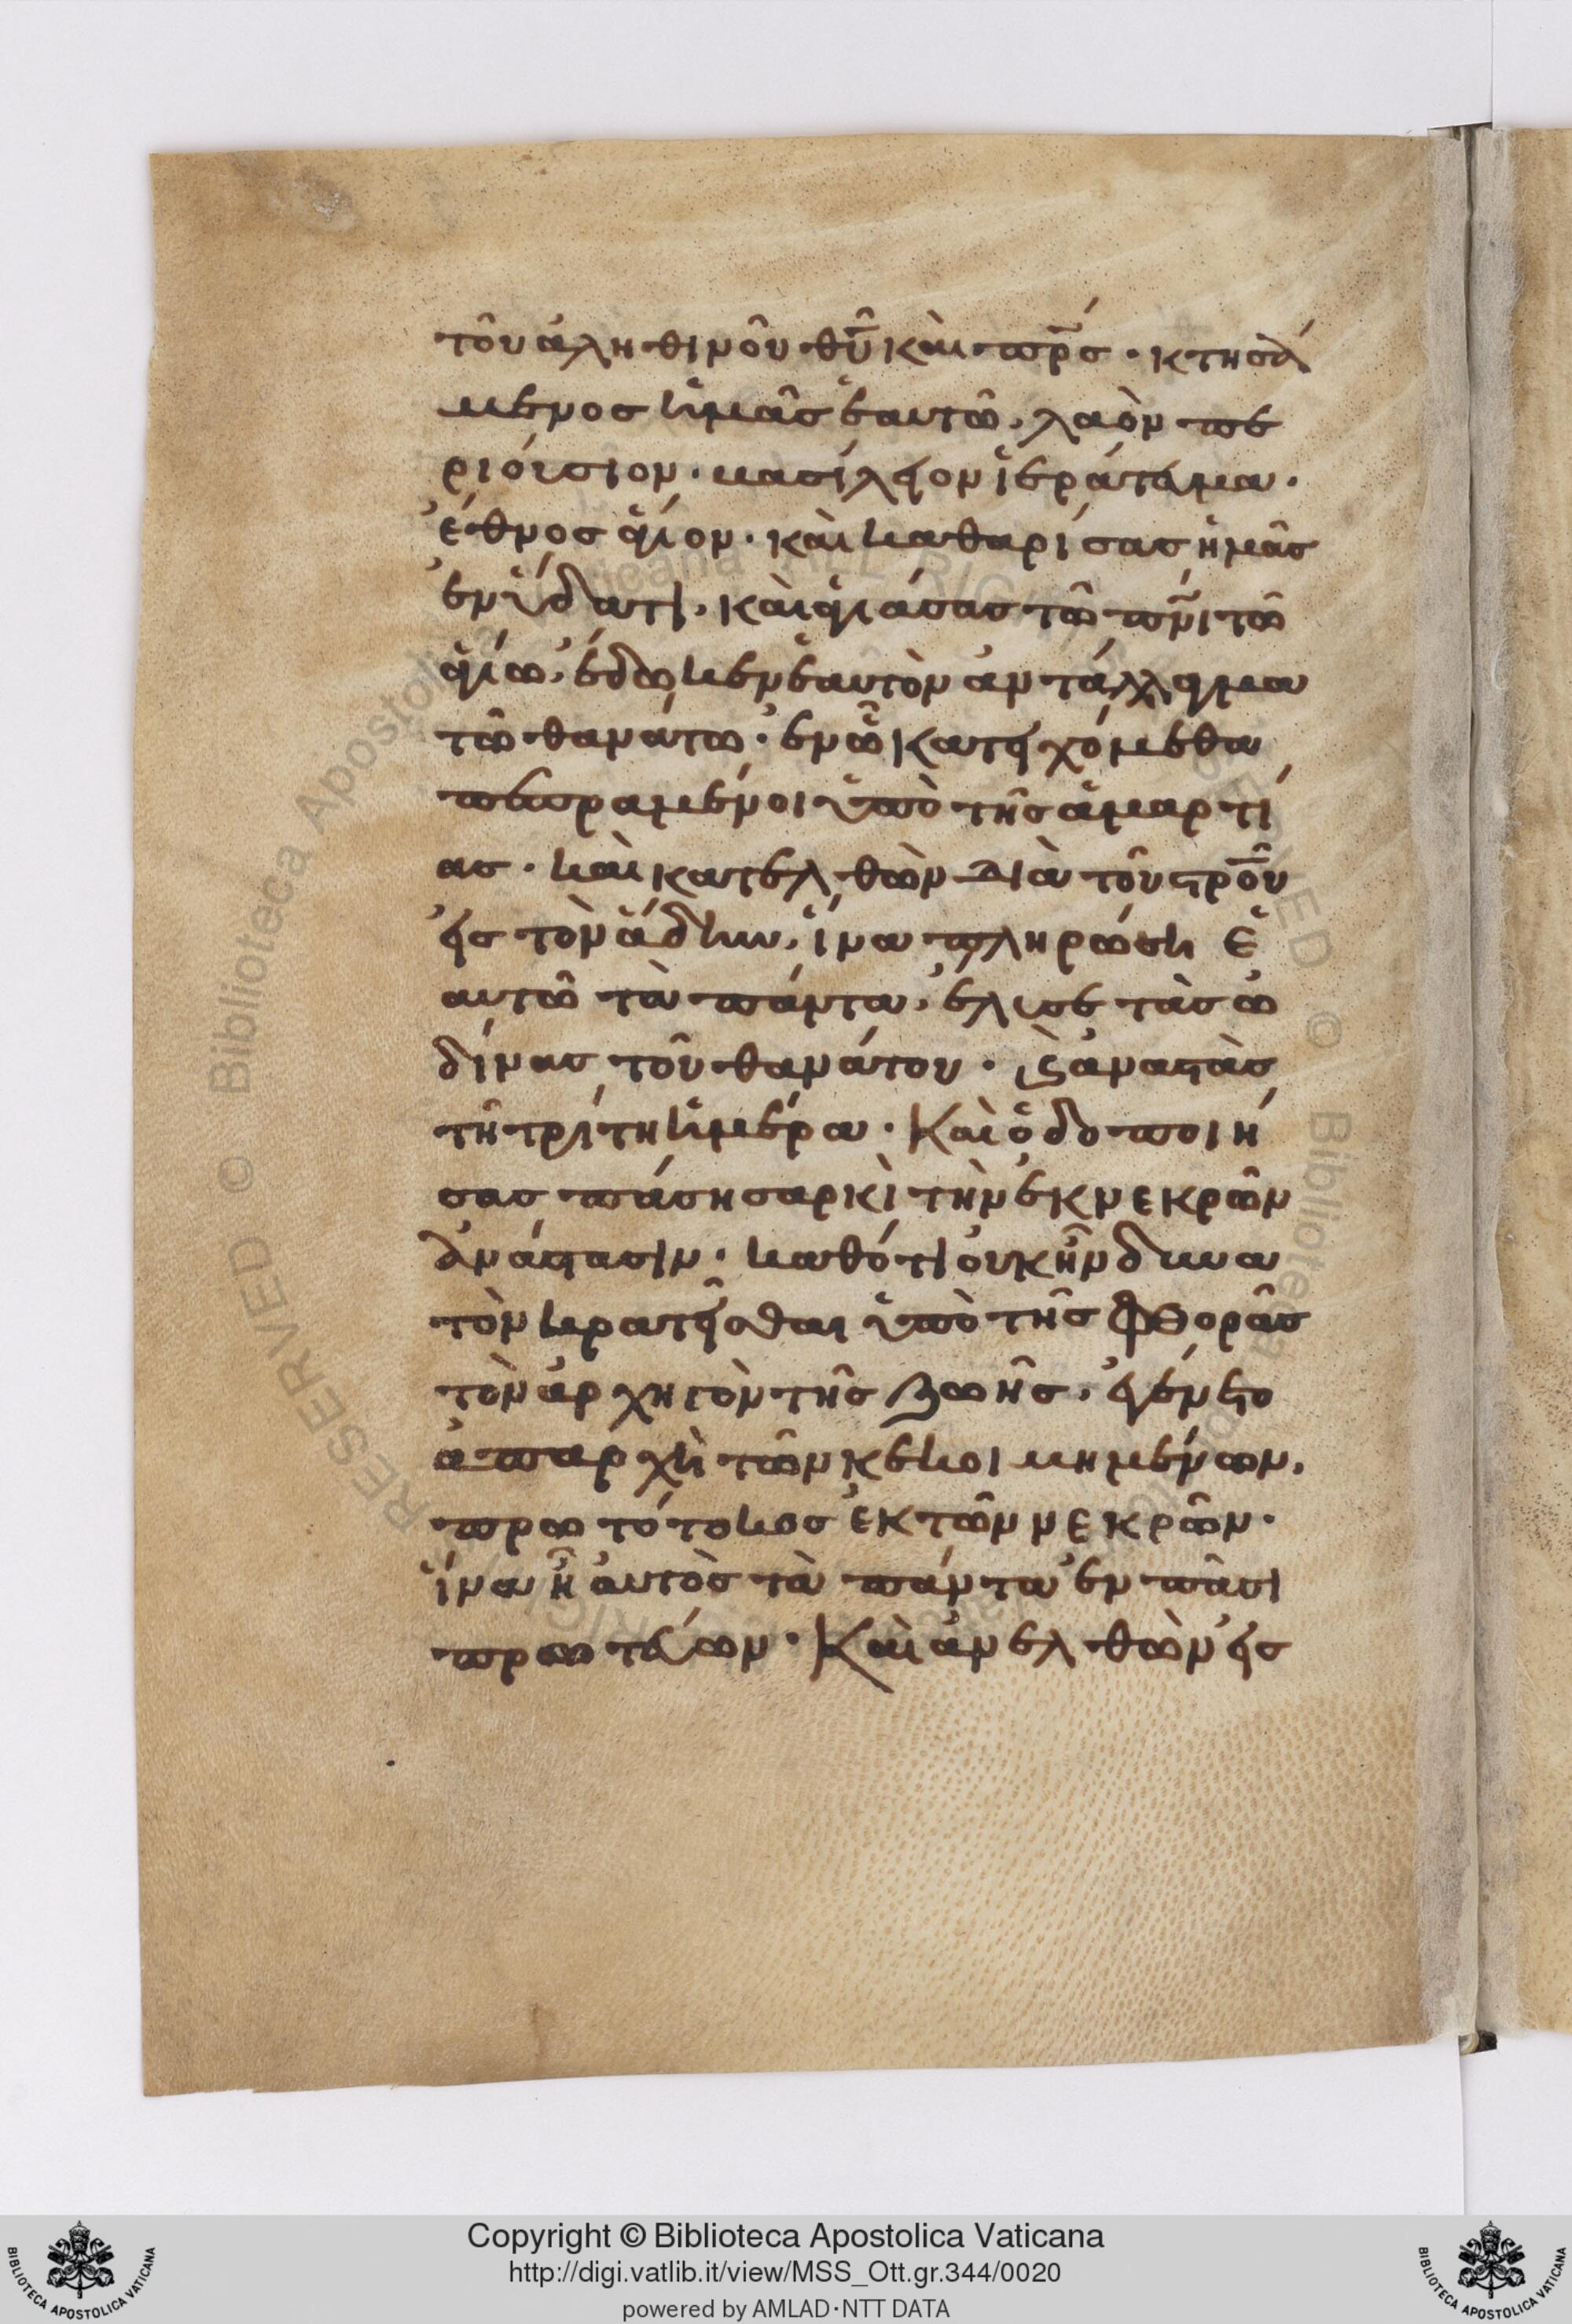 τοῦ ἀληθινοῦ θῦ καὶ πρ̅ς · κτησά
μενος ἡμᾶς ἑαυτῶ, λαὸν πε
ριούσιον · βασίλειον ἱεράτευμα ·
ἔθνος ἅγιον · καὶ καθαρίσας ἡμᾶς
ἐν ὕδατι, καὶ ἁγιάσας τῶ πν̅ι τῶ
ἁγίω, ἔδωκεν ἑαυτὸν ἀντάλλαγμα
τῶ θανάτω · ἐν ὧ κατειχόμεθα
πεπραμένοι ὑπὸ τῆς ἁμαρτί
ας · καὶ κατελθὼν διὰ τοῦ στρο̅ῦ
εἰς τὸν ἅδην, ἵνα πληρώση ἑ
αυτῶ τὰ πάντα, ἔλυσε τὰς ὠ
δίνας τοῦ θανάτου · ϗ ἀναστὰς
τῆ τρίτη ἡμέρα · Καὶ ὁδοποιή
σας πάση σαρκὶ τὴν ἐκ νεκρῶν
ἀνάστασιν · καθότι οὐκ ἦν δυνα
τὸν κρατεῖσθαι ὑπὸ τῆς φθορᾶς
τὸν ἀρχηγὸν τῆς ζωῆς, ἐγένετο
ἀπαρχὴ τῶν κεκοιμημένων,
πρωτότοκος ἐκ τῶν νεκρῶν ·
ἵνα ἦ αὐτὸς τὰ πάντα ἐν πᾶσι
πρωτεύων · Καὶ ἀνελθὼν εἰς
Copyright © Biblioteca Apostolica Vaticana
http://digi.vatlib.it/view/MSS_Ott.gr.344/0020
powered by AMLAD·NTT DATA
BIBLIOTECA APOSTOLICA VATICANA
BIBLIOTECA APOSTOLICA VATICANA